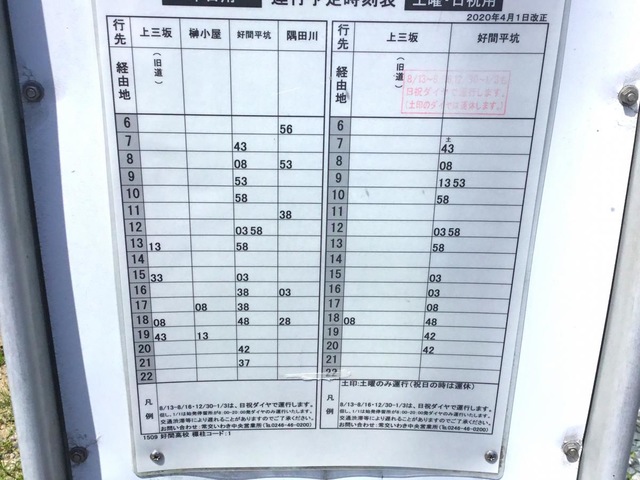 運行予定時刻表
土曜・日祝用
2020年4月1日改正
行先 上三坂 榊小屋 好間平坑 隅田川
経由地 (旧道)
6 56
7 43
8 08 53
9 53
10 58
11 38
12 03 58
13 13 58
14
15 33 03
16 38 03
17 08 38
18 08 48 28
19 43 13
20 42
21 37
22
凡例
8/13-8/16・12/30-1/3は、日祝ダイヤで運行します。
交通渋滞等により遅れることがありますのでご了承ください。
お問い合わせ:常交いわき中央営業所(℡0246-46-0200)
1509 好間高校 標柱コード:1
行先 上三坂 好間平坑
経由地 (旧道)
日祝ダイヤで運行します。
6
土
7 43
8 08
9 13 53
10 58
11
12 03 58
13 58
14
15 03
16 38
17 03
18 08 48
19 42
20 42
21
22
凡例
土印:土曜のみ運行(祝日の時は運休)
8/13-8/16・12/30-1/3は、日祝ダイヤで運行します。
交通渋滞等により遅れることがありますのでご了承ください。
お問い合わせ:常交いわき中央営業所(℡0246-46-0200)